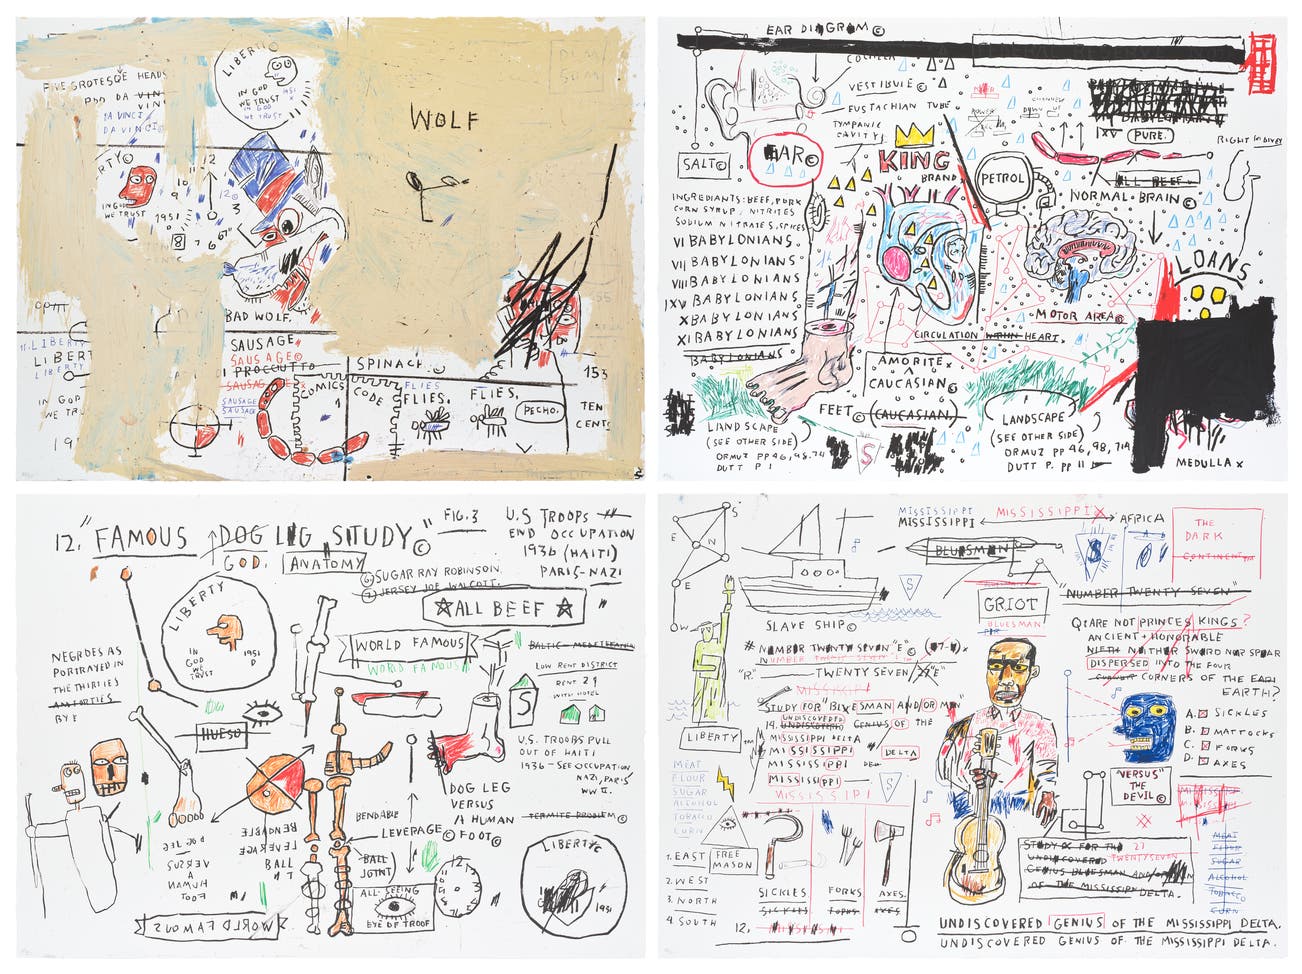 LIBERTY
FIVE GROTESQE HEADS
DA VINCI
DA VINCI©
IN GOD
WE TRUST
IN GOD
WE TRUST
951
WOLF
RTY©
IN GOD
WE TRUST
1951
12
11
10
9
12©
3
8
7
6
BAD WOLF.
LIBERTY
LIBERT
LIBERTY
IN GOD
WE TR
19
SAUSAGE
SAUSAGE©
PROCCUTTO
SAUSAGE
SAUSAGE
SAUSAGE
COMICS
CODE
SPINACH.
FLIES
FLIES,
FLIES,
PECHO.
153
TEN
CENTS
EAR DIAGRAM©
COCHLEA
VESTIBULE©
EUSTACHIAN TUBE
TYMPANIC
CAVITY
SALT©
EAR©
KING
BRAND
PETROL
IXV PURE.
ALL BEEF
NORMAL BRAIN©
RIGHT KIDNEY
INGREDIANTS: BEEF, PORK
CORN SYRUP, NITRITES
SODIUM NITRATES, SPICES
VI BABYLONIANS.
VII BABYLONIANS
VIII BABYLONIANS
IXV BABYLONIANS
X BABYLONIANS
XI BABYLONIANS
BABYLONIANS
LOANS
MOTOR AREA©
CIRCULATION WITHIN HEART.
AMORITE
CAUCASIAN©
FEET© (CAUCASIAN)
LANDSCAPE
(SEE OTHER SIDE)
ORMUZ PP 46, 98. 74
DUTT P 1
S
LANDSCAPE
(SEE OTHER SIDE)
ORMUZ PP 46, 98, 714
DUTT P. PP 11
MEDULLA X
12. "FAMOUS DOG LEG STUDY"©
GOD. ANATOMY
FIG. 3
U.S TROOPS
END OCCUPATION
1936 (HAITI)
PARIS-NAZI
⑥ SUGAR RAY ROBINSON.
⑦ JERSEY JOE WALCOTT.
☆ALL BEEF☆
LIBERTY
IN
GOD
WE
TRUST
1951
D
WORLD FAMOUS
WORLD FAMOUS
BALTIC-MEDETERANIAN
LOW RENT DISTRICT
RENT 29
WITH HOTEL
S
NEGROES AS
PORTRAYED IN
THE THIRTIES
AN FORTIES
BY E
HUESO
U.S. TROOPS PULL
OUT OF HAITI
1936 - SEE OCCUPATION
NAZI, PARIS
WW II.
DOG LEG
VERSUS
A HUMAN
FOOT©
TERMITE PROBLEM©
BENDABLE
LEVERAGE©
BENDABLE
LEVERAGE
BALL
DOG LEG
VERSUS
A HUMAN
FOOT
BALL
JOINT
ALL-SEEING
EYE OF PROOF
12
LIBERTY©
1951
WORLD FAMOUS
S
E
N
E
W
MISSISSIPPI MISSISSIPPI
MISSISSIPPI AFRICA
THE
DARK
CONTINENT
BLUESMAN
S
S
SLAVE SHIP©
GRIOT
BLUESMAN
"NUMBER TWENTY SEVEN"
# NUMBER TWENTY SEVEN "E"©
NUMBER TWENTY SEVEN
"R" TWENTY SEVEN
MISSISSIPPI
STUDY FOR BLUESMAN AND/OR MAN
UNDISCOVERED
19. UNDISCOVERED GENIUS OF THE
MISSISSIPPI DELTA
MISSISSIPPI DELTA
MISSISSIPPI
MISSISSIPPI
MISSISSIPPI
S
Q: ARE NOT PRINCES KINGS?
ANCIENT + HONORABLE
NIETH NEITHER SWORD NOR SPEAR
DISPERSED INTO THE FOUR
CORNER CORNERS OF THE EARTH
EARTH?
A. SICKLES
B. MATTOCKS
C. FORKS
D. AXES
LIBERTY
MEAT
FLOUR
SUGAR
ALCOHOL
TOBACCO
CORN
FREE
MASON
1. EAST
2. WEST
3. NORTH
4. SOUTH
SICKLES FORKS AXES.
SICKLES FORKS AXES
12. MISSISSIPPI
"VERSUS"
THE
DEVIL©
STUDY OF FOR THE 27
UNDISCOVERED TWENTYSEVEN
GENIUS BLUESMAN AND/OR MAN
OF THE MISSISSIPPI DELTA.
MEAT
FLOUR
SUGAR
ALCOHOL
TOBACCO
CORN
UNDISCOVERED GENIUS OF THE MISSISSIPPI DELTA.
UNDISCOVERED GENIUS OF THE MISSISSIPPI DELTA.